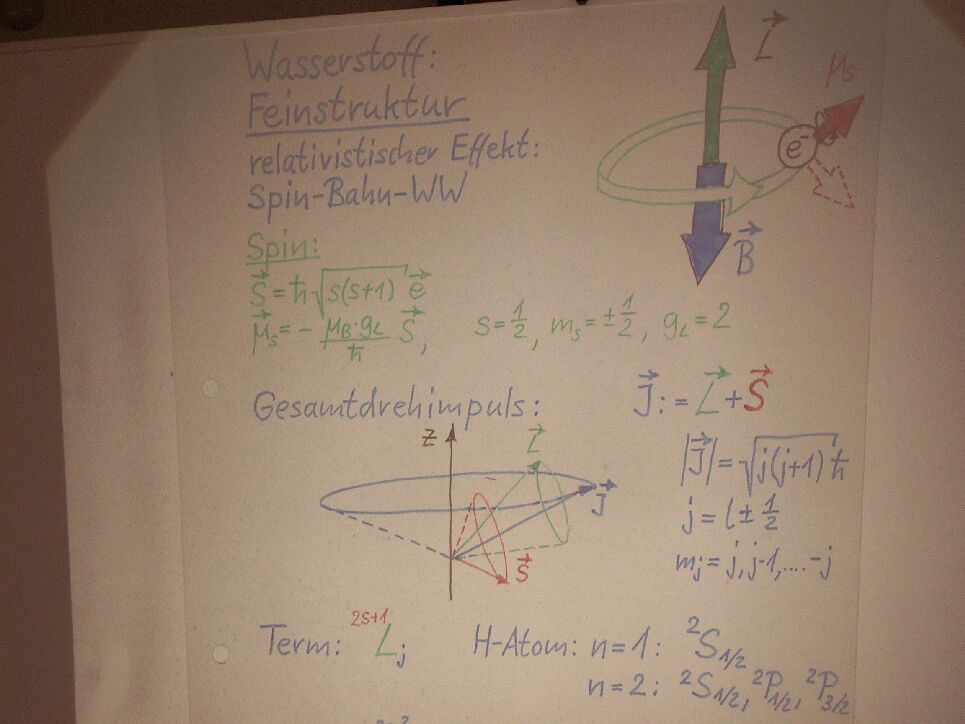 Wasserstoff:
Feinstruktur
relativistischer Effekt:
Spin-Bahn-WW
L⃗
μs
e⁻
B⃗
Spin:
S⃗ = ħ√s(s+1) e⃗
μ⃗s = - μB·gL/ħ S⃗, s = 1/2, ms = ±1/2, gL = 2
Gesamtdrehimpuls: J⃗ := L⃗ + S⃗
z
L⃗
J⃗
S⃗
|J⃗| = √j(j+1) ħ
j = l ± 1/2
mj = j, j-1, .... -j
Term: ²ˢ⁺¹Lj H-Atom: n = 1: ²S1/2
n = 2: ²S1/2, ²P1/2, ²P3/2